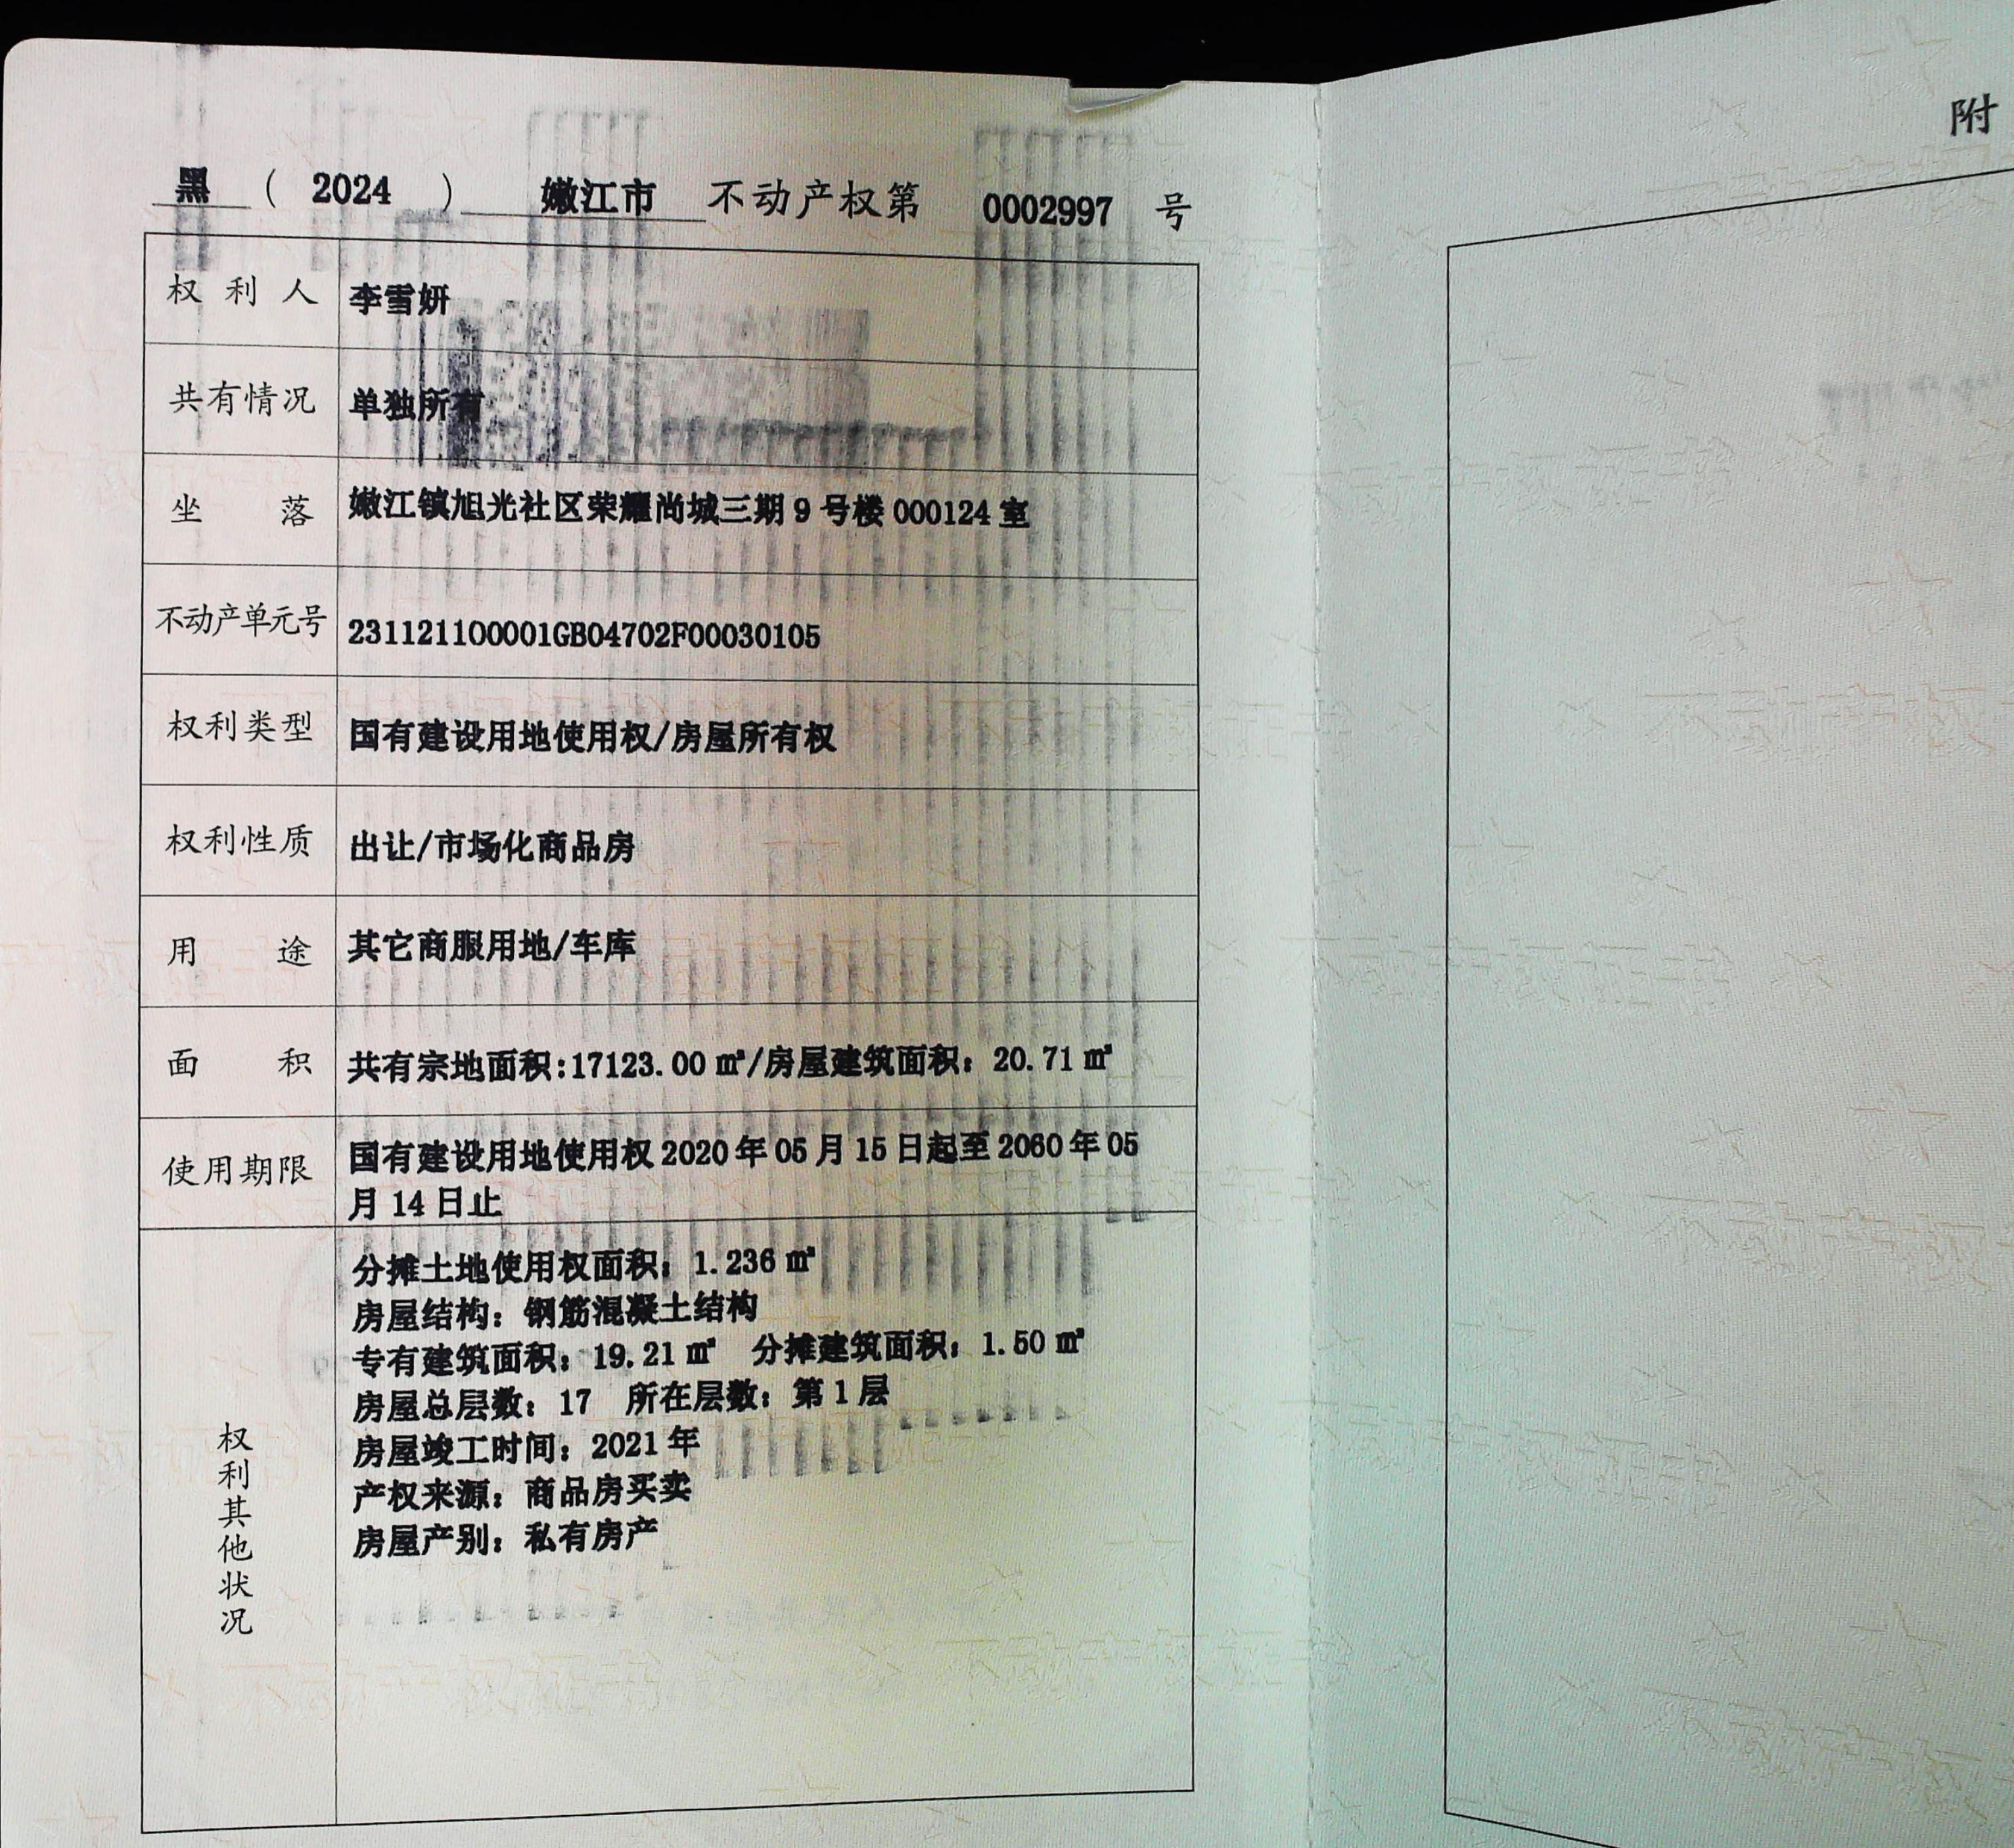 黑 ( 2024 ) 嫩江市 不动产权第 0002997 号
附
权利人 李雪妍
共有情况 单独所有
坐落 嫩江镇旭光社区荣耀尚城三期 9 号楼 000124 室
不动产单元号 231121100001GB04702F00030105
权利类型 国有建设用地使用权/房屋所有权
权利性质 出让/市场化商品房
用途 其它商服用地/车库
面积 共有宗地面积:17123.00 ㎡/房屋建筑面积：20.71 ㎡
使用期限 国有建设用地使用权 2020 年 05 月 15 日起至 2060 年 05
月 14 日止
权利其他状况
分摊土地使用权面积：1.236 ㎡
房屋结构：钢筋混凝土结构
专有建筑面积：19.21 ㎡ 分摊建筑面积：1.50 ㎡
房屋总层数：17 所在层数：第 1 层
房屋竣工时间：2021 年
产权来源：商品房买卖
房屋产别：私有房产